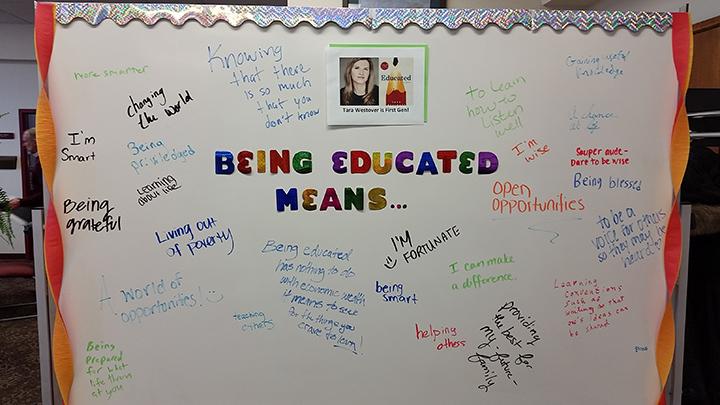 Knowing
that there
is so much
that you
don't know
Educated
Tara Westover is First Gen!
more smarter
changing
the world
to learn
how to
listen
well
Gaining useful
knowledge
A chance
at life
I'm
Smart
Being
privledged
Learning
about life!
BEING EDUCATED
MEANS...
I'm
wise
Sauper aude -
Dare to be wise
Being blessed
Open
opportunities
Being
grateful
Living out
of poverty
I'M
FORTUNATE
to be a
voice for others
so they may be
heard
A world of
opportunities!
Being educated
has nothing to do
with economic wealth
it means to seek
for the things you
crave to learn!
being
smart
I can make
a difference.
Learning
conventions
such as
writing so that
one's ideas can
be shared
teaching
others
helping
others
providing
the best for
my future
family
Being
prepared
for what
life throws
at you